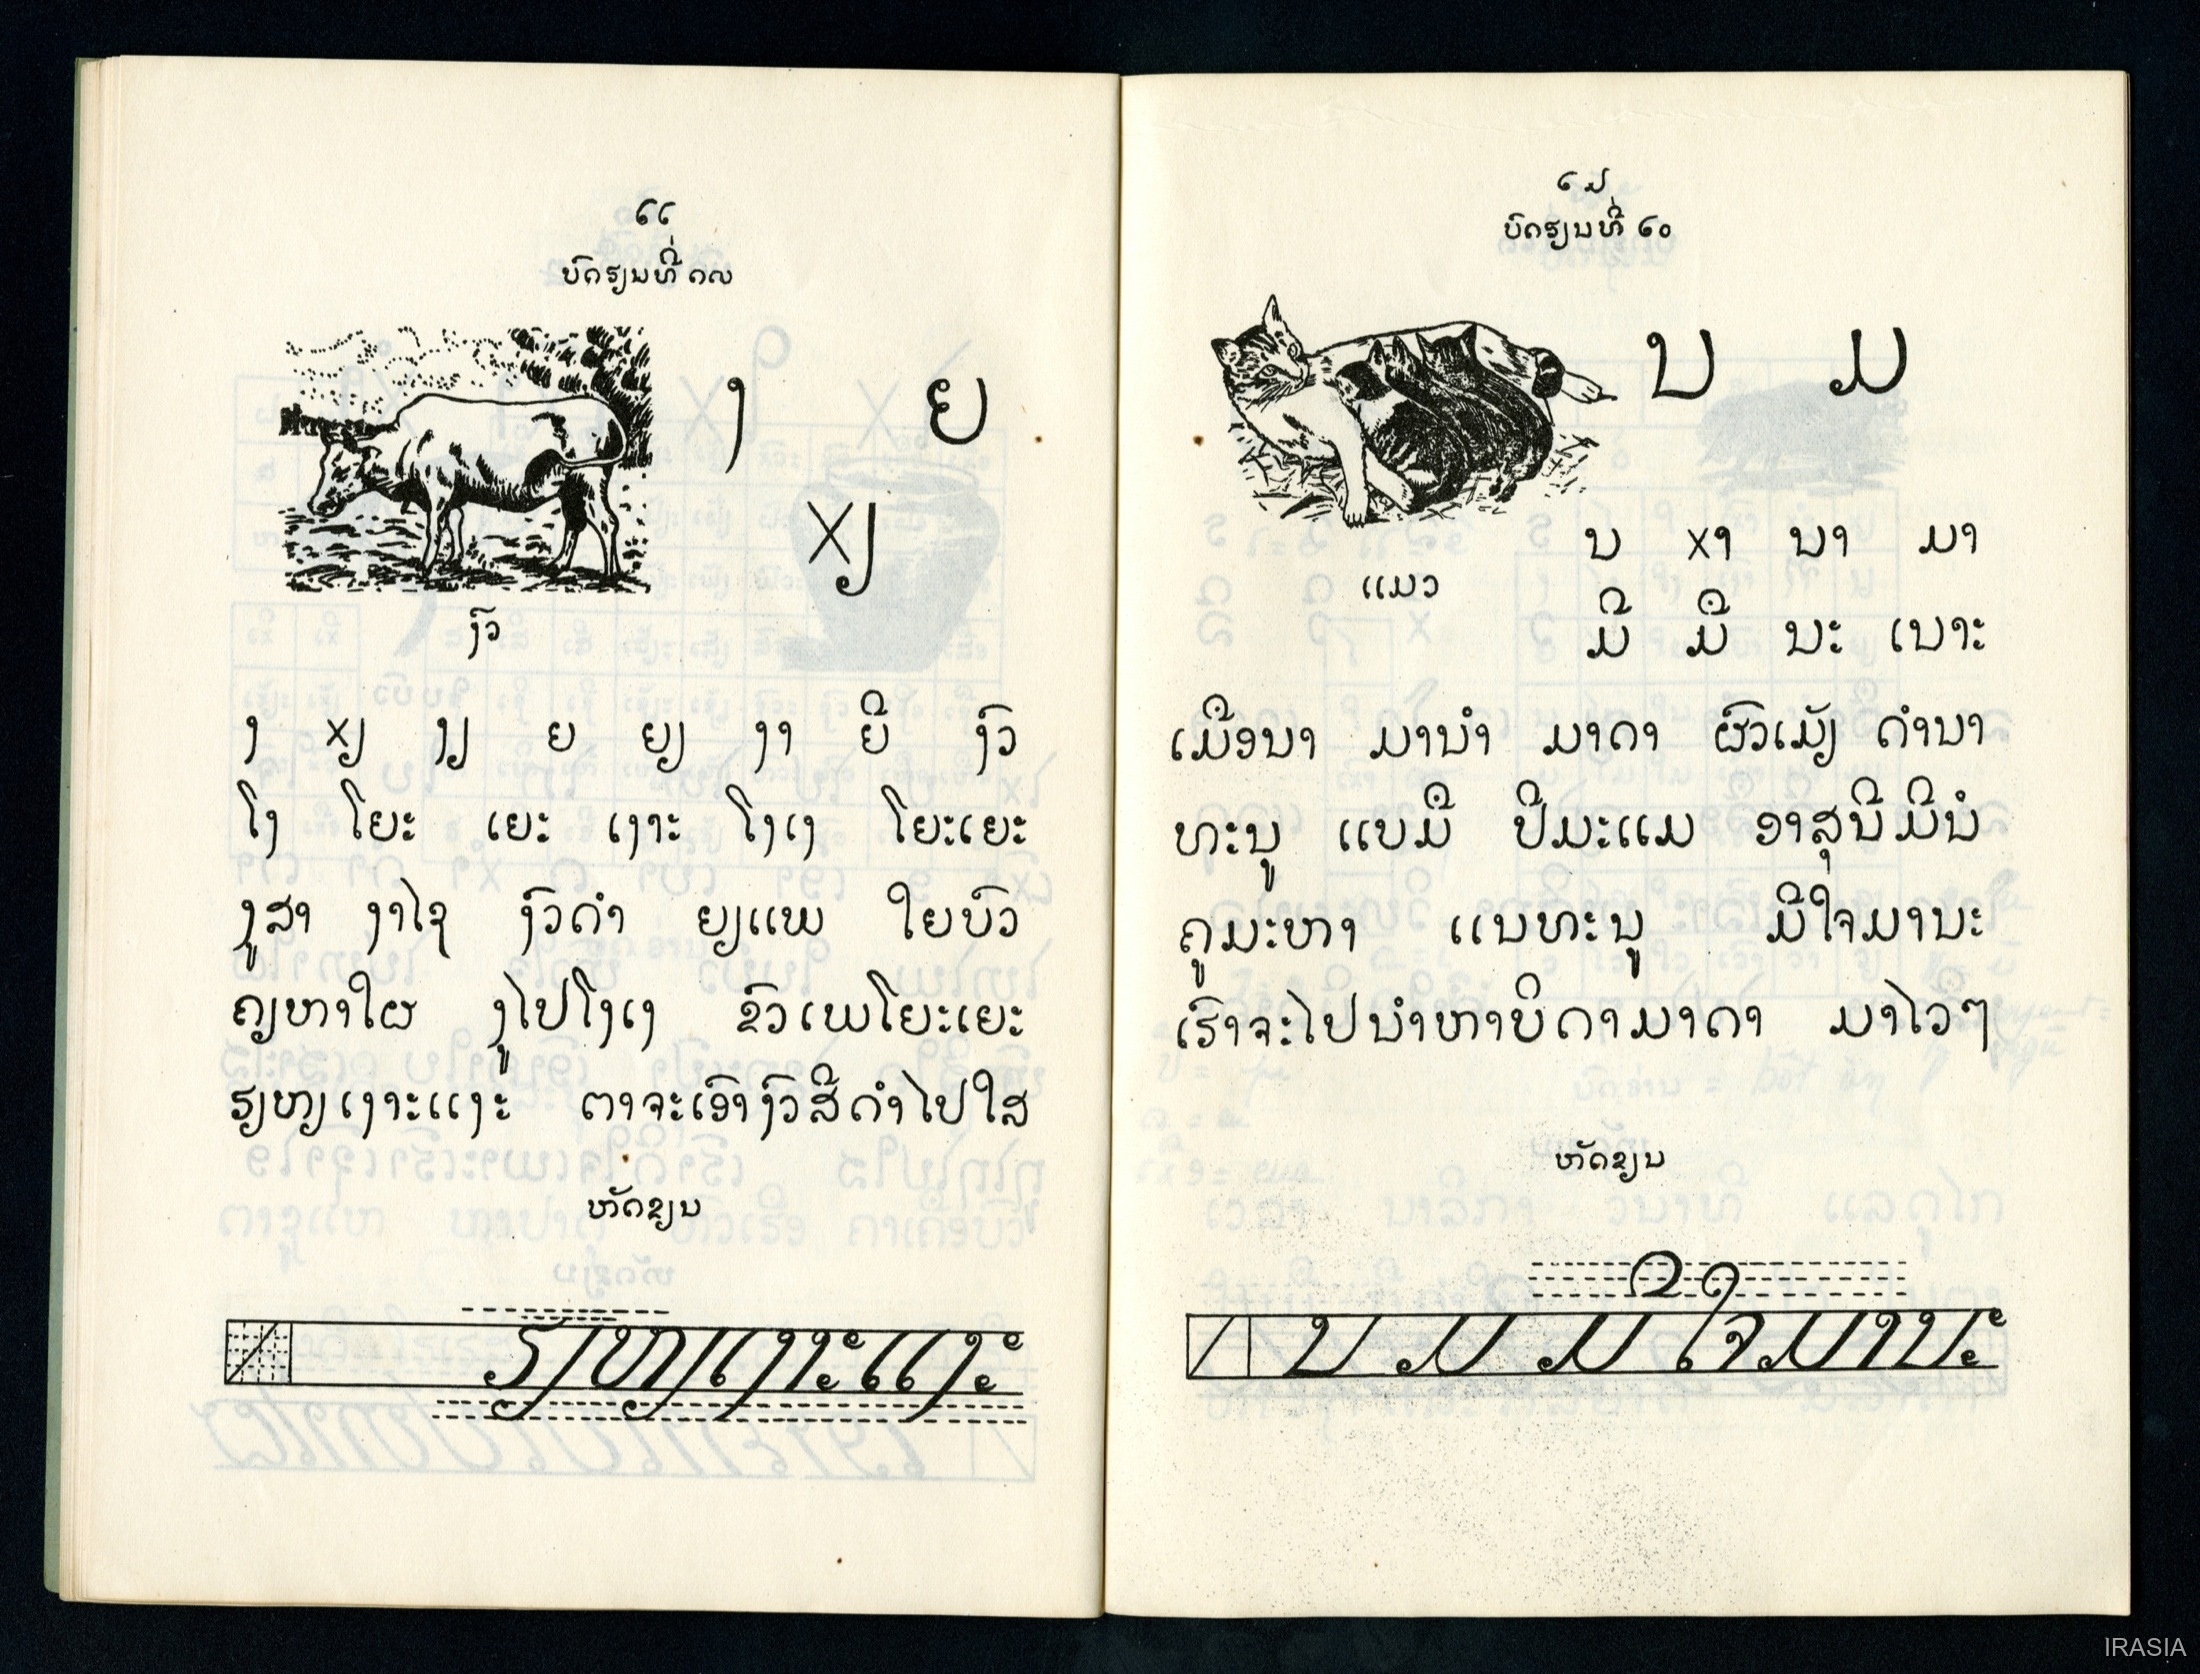 ໒໒
ບົດຮຽນທີ່ ໑໙
ງ ຍ
xຽ
ງົວ
ງ xຽ ງຽ ຍ ຍຽ ງາ ຍີ ງົວ
ໂງ ໂຍະ ເຍະ ເງາະ ໂງເງ ໂຍະເຍະ
ງູສາ ງາໄຊ ງົວດຳ ຍຽແພ ໃຍບົວ
ຄຽຫາໃຜ ງູໄປໂງເງ ຂົວເພໂຍະເຍະ
ຮຽຫຽເງາະແງະ ຕາຈະເອົາງົວສີດຳໄປໃສ
ຫັດຂຽນ
ຮຽຫຽເງາະແງະ
໒໓
ບົດຮຽນທີ່ ໒໐
ນ ມ
ນ xາ ນາ ມາ
ແມວ
ມີ ມື ນະ ເນາະ
ເມືອນາ ມານຳ ມາດາ ຜົວເມັຽ ດຳນາ
ທະນູ ແບມື ປີມະແມ ອາສຸນີມີນໍ
ຄູມະຫາ ແນທະນູ ມີໃຈມານະ
ເຮົາຈະໄປນຳຫາບິດາມາດາ ມາໄວໆ
ຫັດຂຽນ
ນ ມ ມີໃຈມານະ
IRASIA